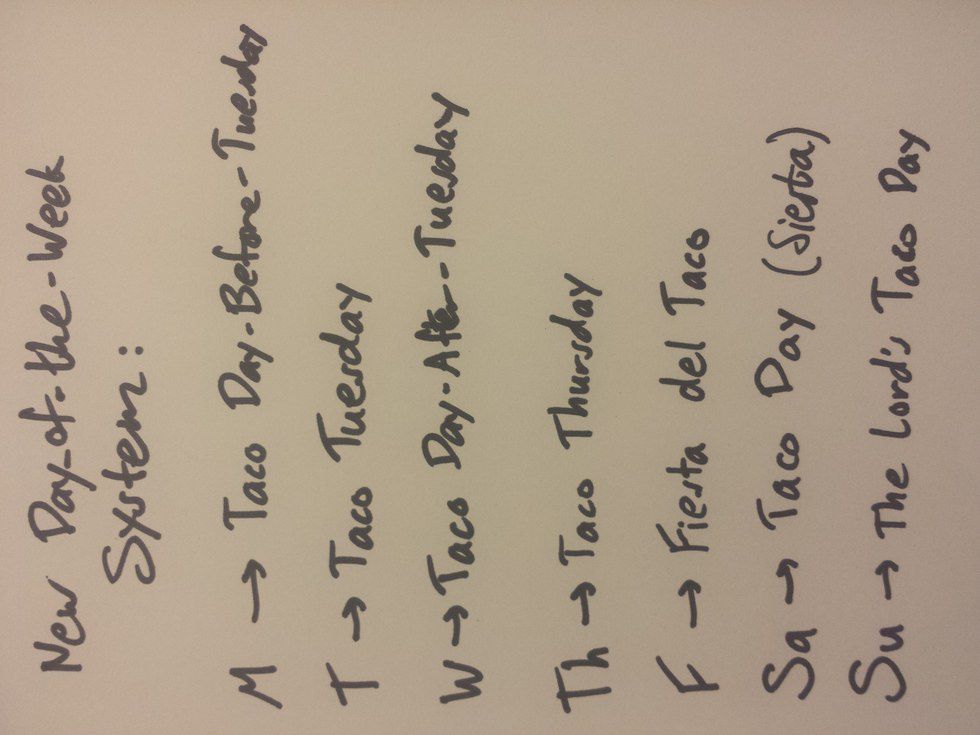 New Day-of-the-Week
System:
M → Taco Day-Before-Tuesday
T → Taco Tuesday
W → Taco Day-After-Tuesday
Th → Taco Thursday
F → Fiesta del Taco
Sa → Taco Day (Siesta)
Su → The Lord's Taco Day